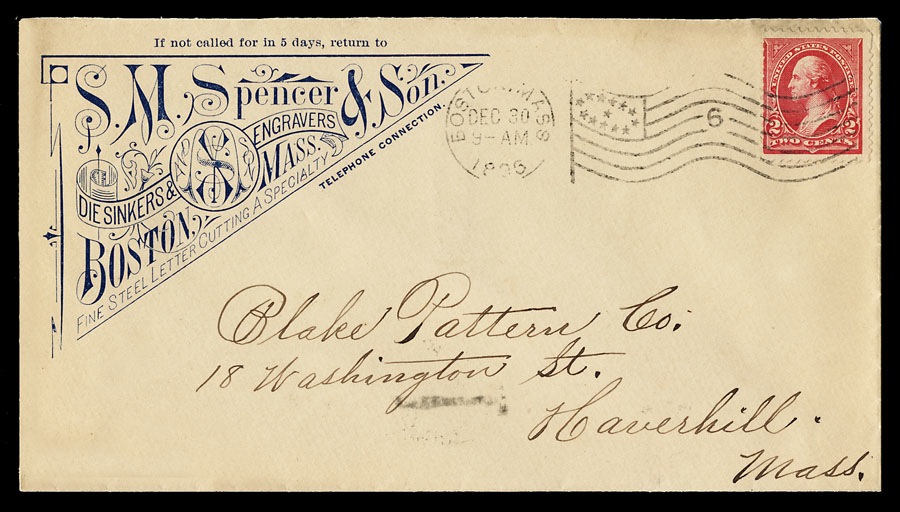 If not called for in 5 days, return to
S. M. Spencer & Son.
DIE SINKERS & ENGRAVERS
BOSTON, MASS.
FINE STEEL LETTER CUTTING A SPECIALTY
TELEPHONE CONNECTION.
BOSTON, MASS
DEC 30
9-AM
6
UNITED STATES POSTAGE
2 2
TWO CENTS
Blake Pattern Co.
18 Washington St.
Haverhill.
Mass.